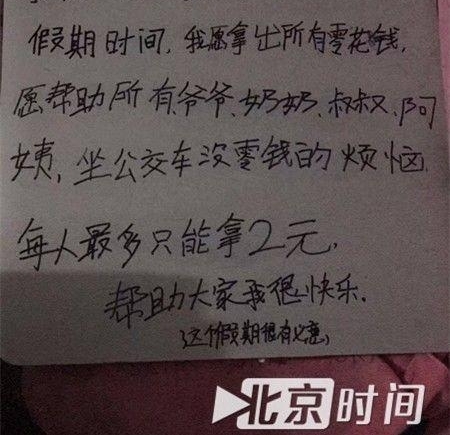 假期时间,我愿拿出所有零花钱,
愿帮助所有爷爷、奶奶、叔叔、阿
姨,坐公交车没零钱的烦恼.
每人最多只能拿2元,
帮助大家我很快乐.
这个假期很有意
北京时间